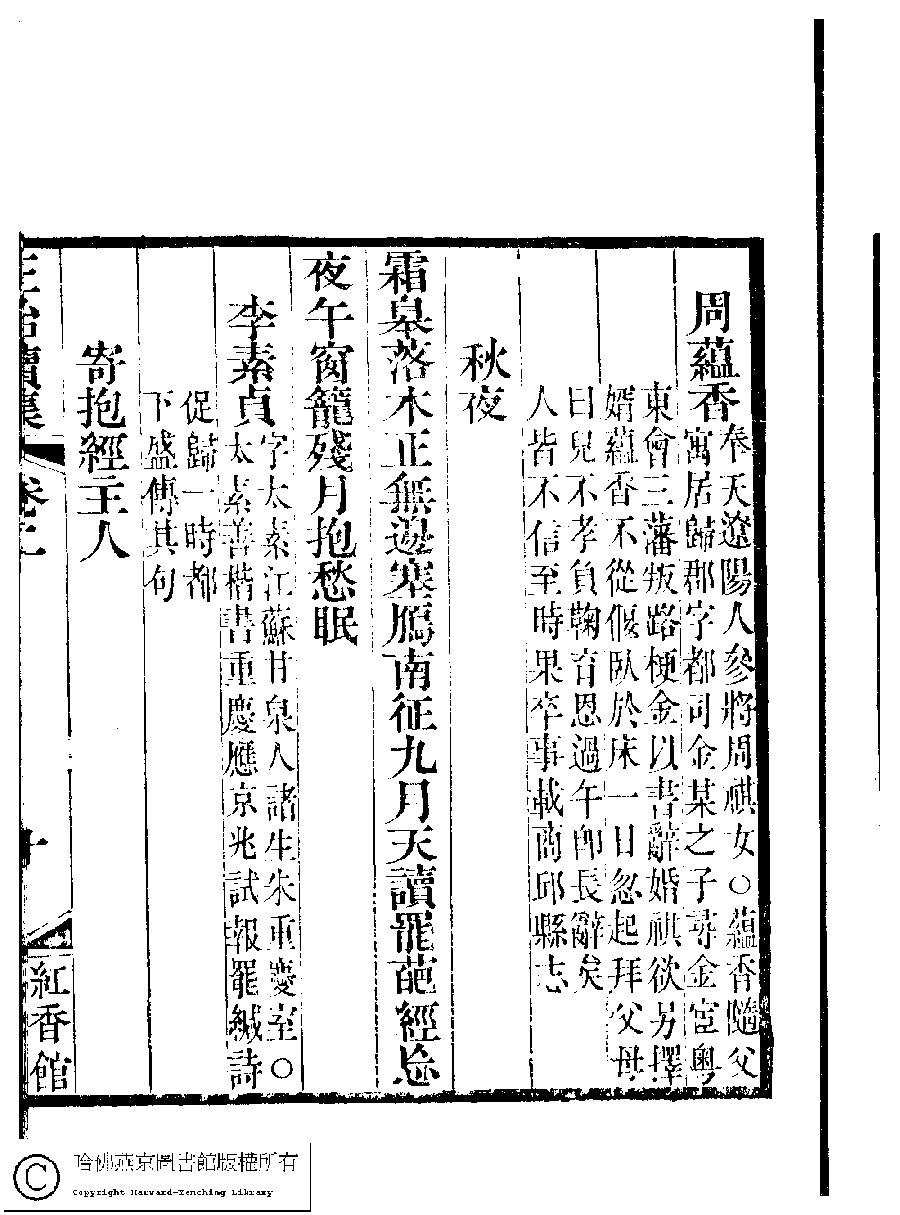 周蘊香奉天遼陽人參將周祺女○蘊香隨父
寓居歸郡字都司金某之子尋金宦粵
東會三藩叛路梗金以書辭婚祺欲另擇
婿蘊香不從偃臥於床一日忽起拜父母
曰兒不孝負鞠育恩過午卽長辭矣
人皆不信至時果卒事載商邱縣志
秋夜
霜臯落木正無邊塞鴈南征九月天讀罷葩經忘
夜午窗籠殘月抱愁眠
李素貞字太素江蘇甘泉人諸生朱重慶室○
太素善楷書重慶應京兆試報罷緘詩
促歸一時都
下盛傳其句
寄抱經主人
正始續集 卷二 十 紅香館
哈佛燕京圖書館版權所有
Copyright Harvard-Yenching Library